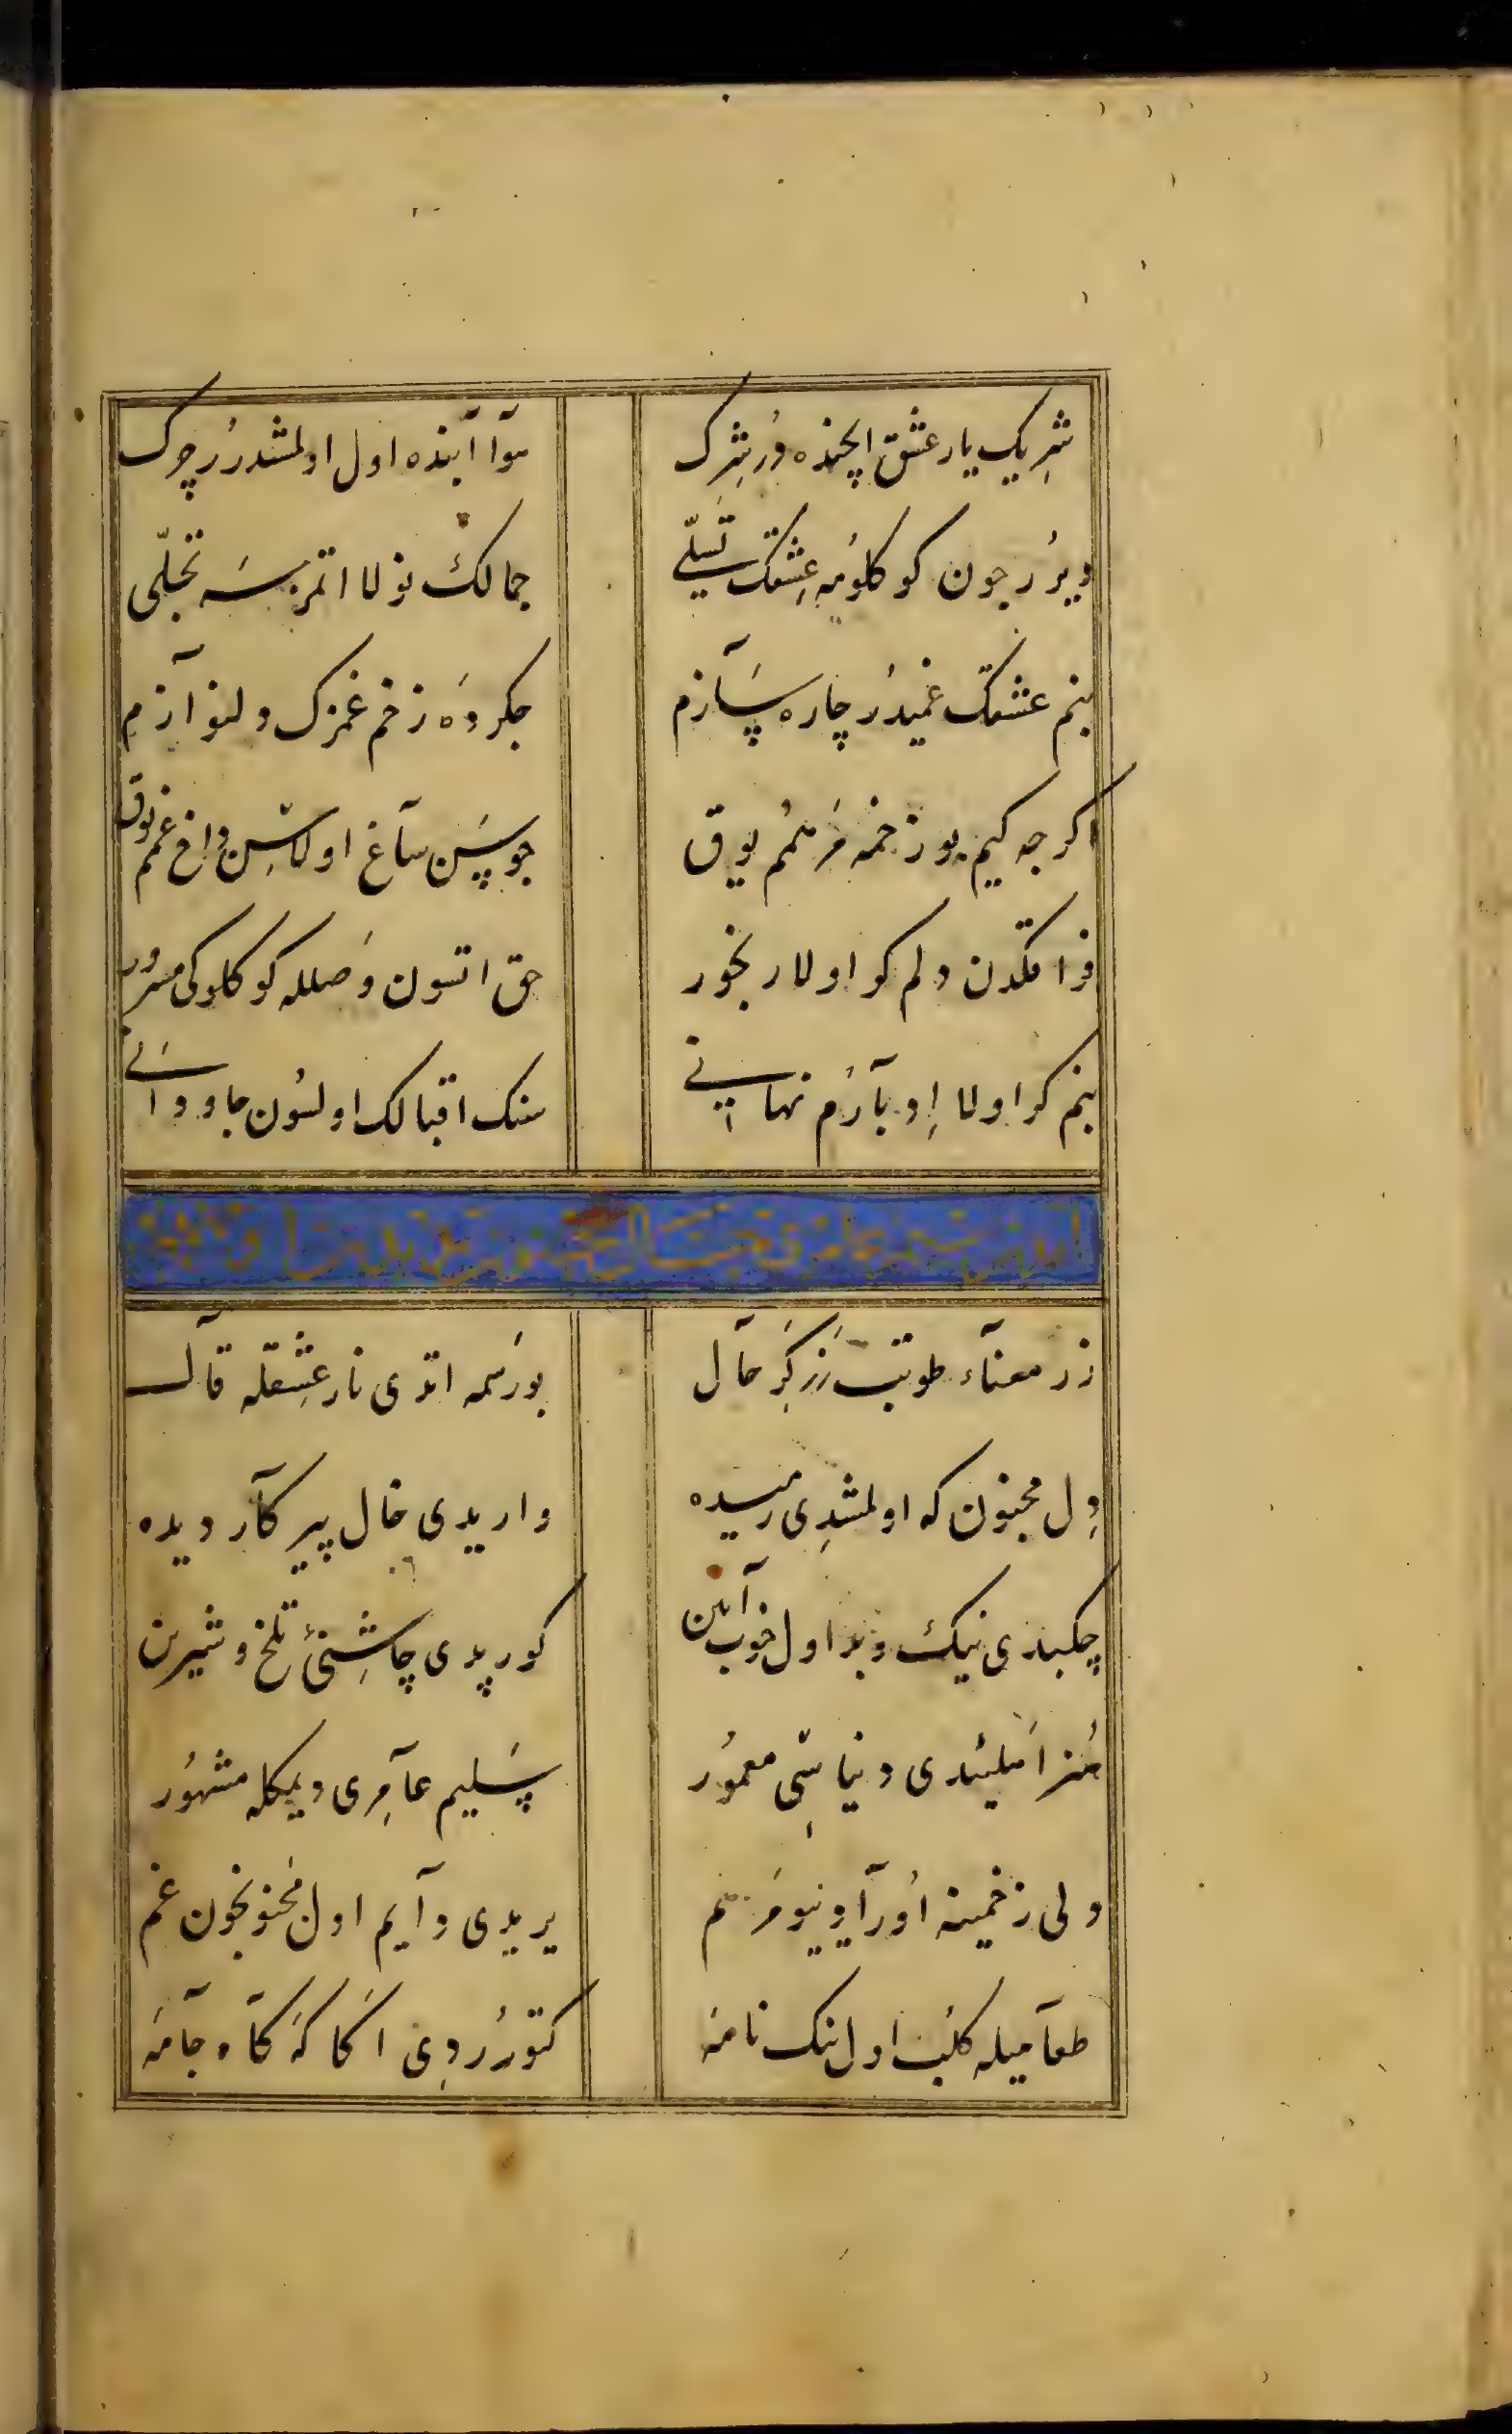 شِریك یار عشق ایچنده دُر شِرك
سوآ آینده اول اولمشدرُر چرك
ویرُر چون کوکلومه عِشقك تسلّی
جمالك نولا اتمزسَه تجلّی
بنم عشقك غمیدُر چاره سَآزم
جکردَه زخم غمزك دلنوآزم
اکرچه کیم بو زخمه مَرهمُم یوق
چو سَن سآغ اولاسِن داغ غمم یوق
فراقکدن دلم کر اولا رنجور
حق اتسون وَصلله کوکلوکی مسرُور
بنم کر اولا اِدبآرُم نهانی
سنك اقبالك اولسُون جاودانَی
زر معنآء طوتب زَرکَر حآل
بو رَسمه اتدی نار عِشقله قآل
دِل مجنون که اولمشدِی رمیده
واریدی خال پیر کآر دیده
چکبدی نیك و بد اول خوب آیین
کورپدی چاشِنیٔ تلخ و شیرن
هُنر اَهلیندی دنیاسِی معمُور
سَلیم عآمِرِی دیمکله مشهوُر
ولی زخمینه اُورآدینیو مَرهم
یریدی دآیم اول مَجنونچون غم
طعآمیله کلُب اول نیك نامَه
کتورُردِی اکَا کَه کآه جآمَه